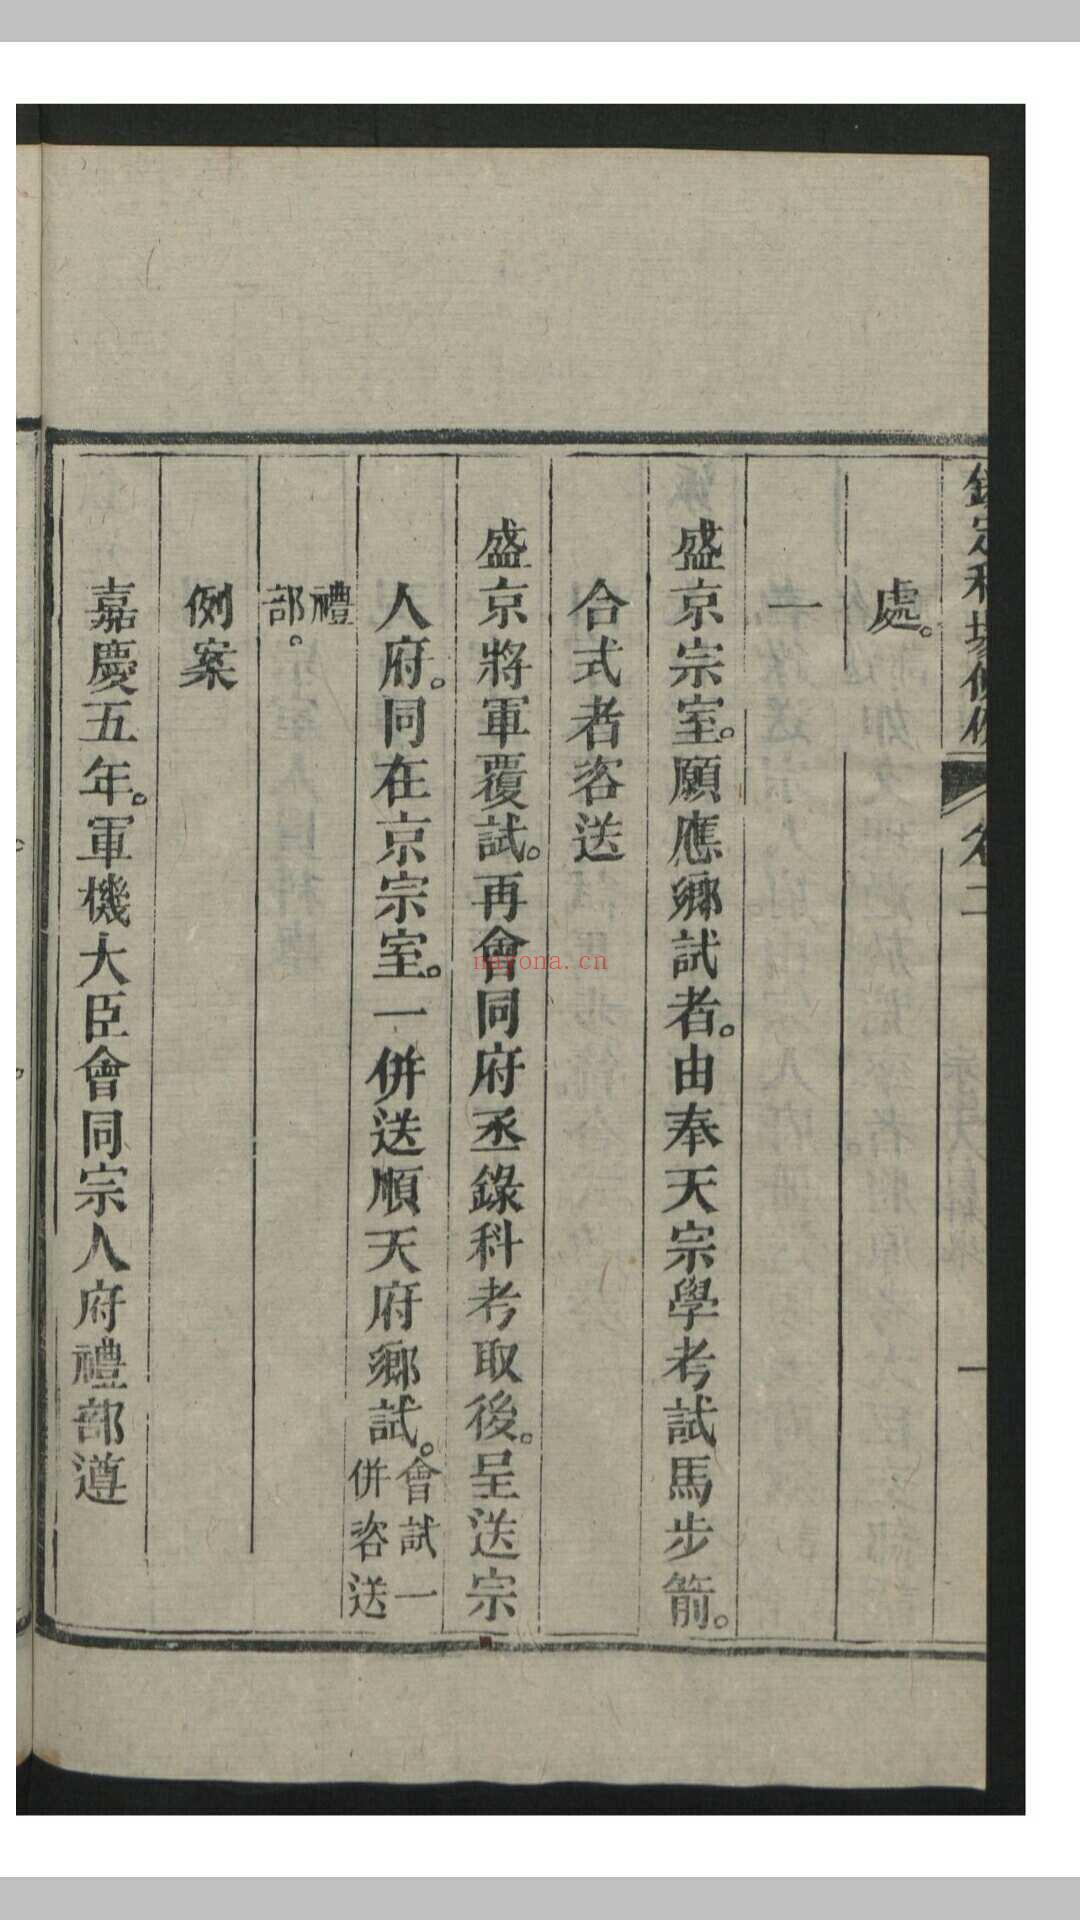 欽定科場條例 卷二 一
處。
一
盛京宗室。願應鄉試者。由奉天宗學考試馬步箭。
合式者咨送
盛京將軍覆試。再會同府丞錄科考取後。呈送宗
人府。同在京宗室。一併送順天府鄉試。會試一併咨送
禮部。
例案
嘉慶五年。軍機大臣會同宗人府禮部遵
nayona.cn